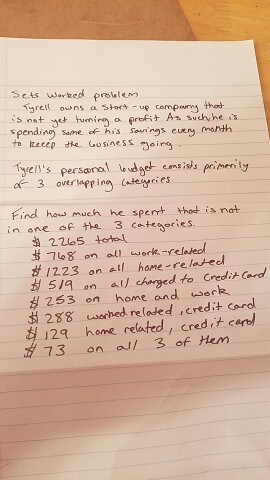 Sets worked problem
Tyrell owns a start-up company that
is not yet turning a profit As such, he is
spending some of his savings every month
to keeep the business going.
Tyrell's personal budget consists primarily
of 3 overlapping categories.
Find how much he spent that is not
in one of the 3 categories.
$ 2265 total
$ 768 on all work-related
$ 1223 on all home-related
$ 519 on all charged to credit card
$ 253 on home and work
$ 288 worked related, credit card
$ 129 home related, credit card
$ 73 on all 3 of them